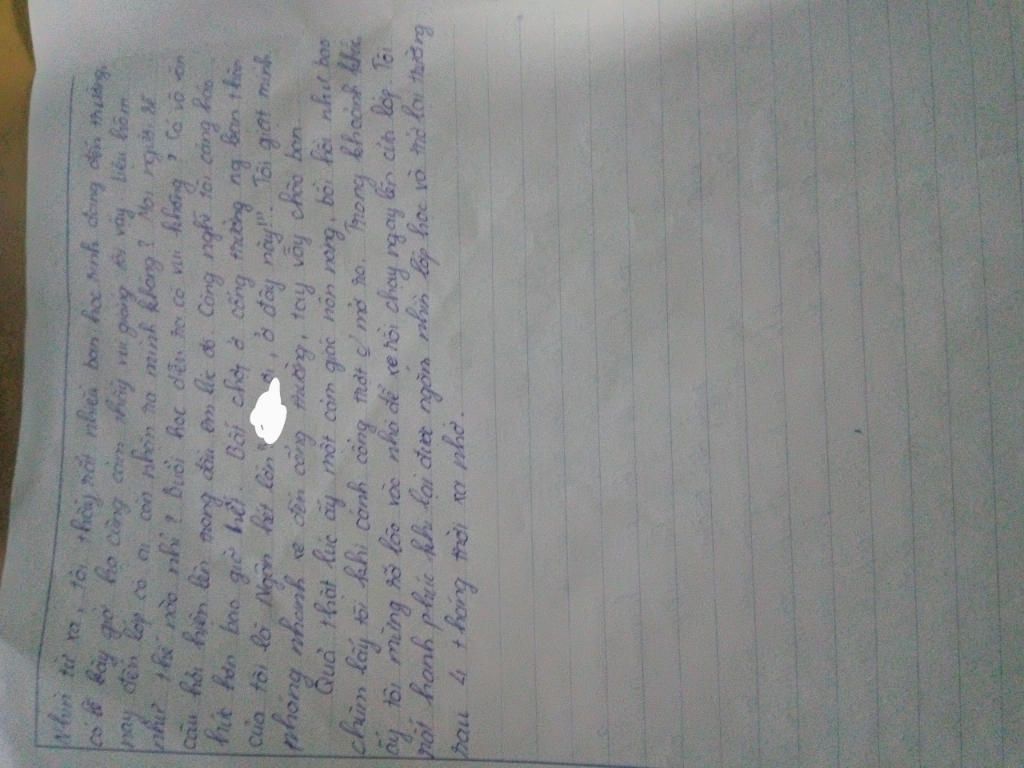 Nhìn từ xa, tôi thấy rất nhiều bạn học sinh đang đến trường,
có lẽ bây giờ họ cũng cảm thấy vui giống tôi vậy. Liệu hôm
nay đến lớp có ai còn nhận ra mình không? Mọi người sẽ
như thế nào nhỉ? Buổi học đầu ra có vui không? Có vô vàn
câu hỏi hiện lên trong đầu em lúc đó. Càng nghĩ tôi càng háo
hức hơn bao giờ hết. Bất chợt ở cổng trường ng bạn thân
của tôi là Ngân hét lên " ơi, ở đây này!". Tôi giật mình
phóng nhanh xe đến cổng trường, tay vẫy chào bạn.
Quả thật lúc ấy một cảm giác nôn nóng, bồi hồi như bao
chùm lấy tôi khi cánh cổng mở ra. Trong khoảnh khắc
ấy tôi mừng rỡ lao vào nhà để xe rồi chạy ngay lên cửa lớp. Tôi
rất hạnh phúc khi lại được ngắm nhìn lớp học và trở lại trường
sau 4 tháng trời xa nhớ.